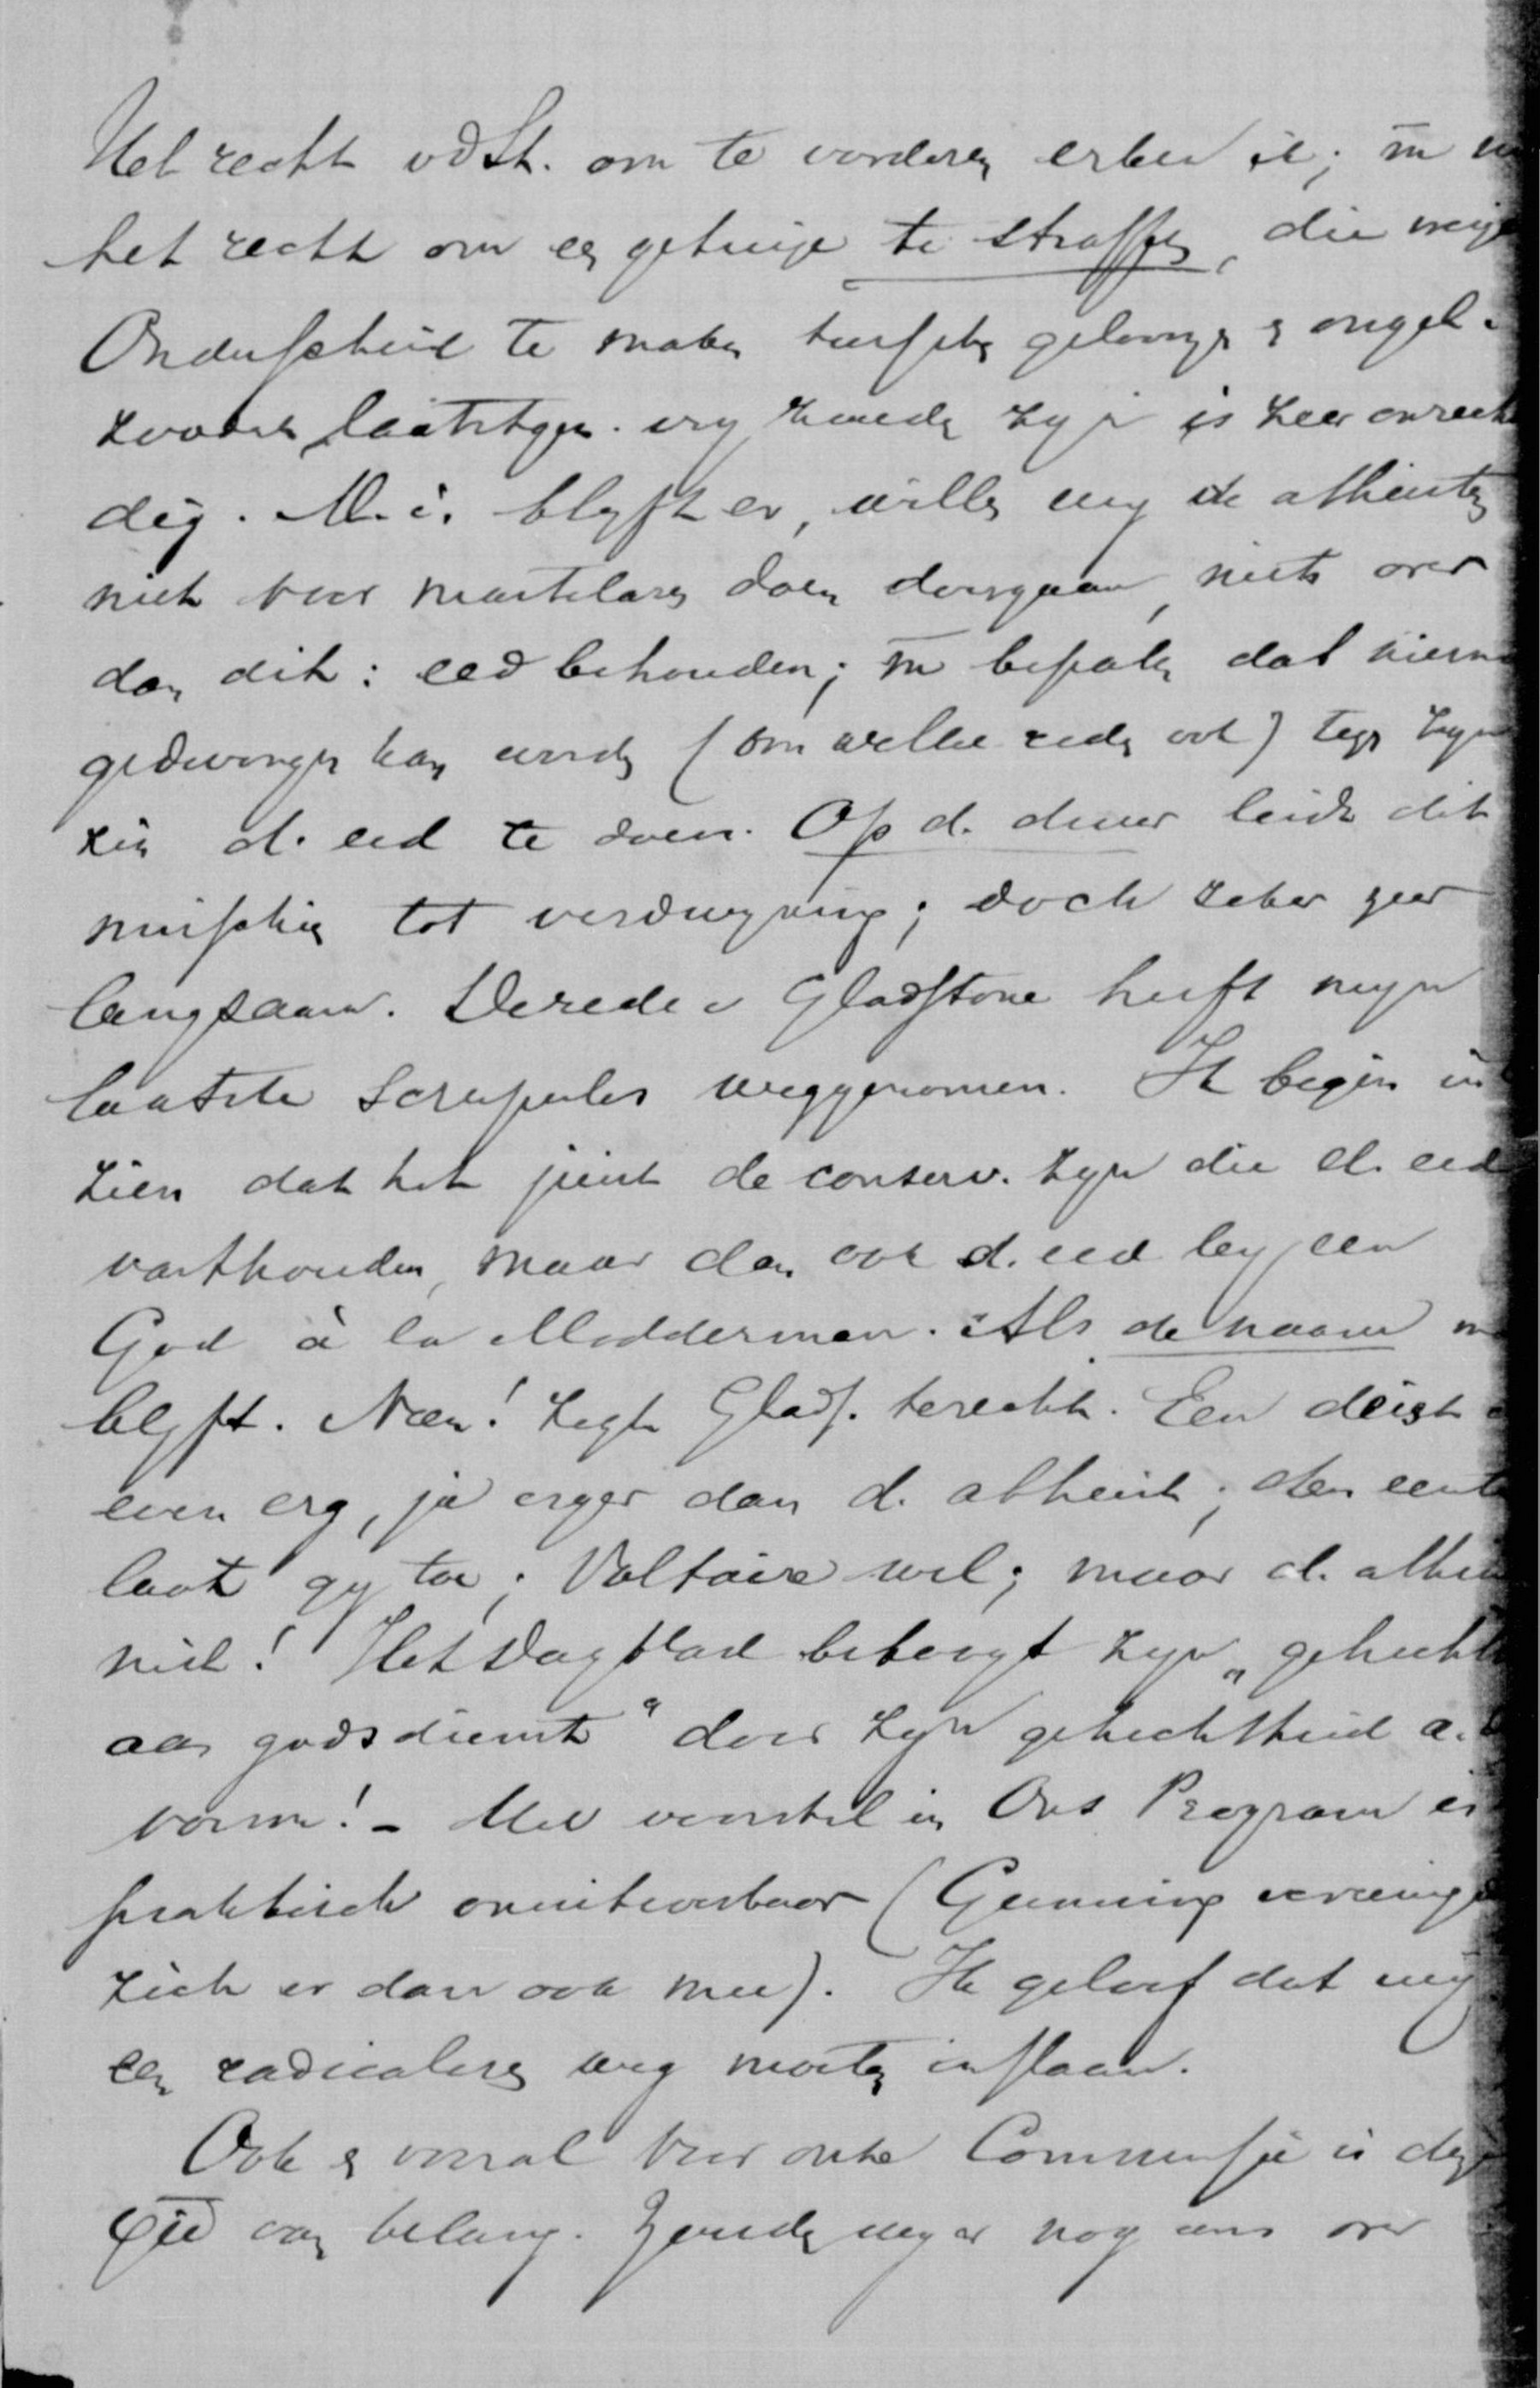 Het recht v d St. om te vorderen erken ik; m n
het recht om een getuige te straffen, die weig
Onderscheid te maken tusschen geloovigen & ongel.
zoodat laatstgen. vry zouden zyn is zeer onrecht
dig. M. i. blyft er, willen wy de atheisten
niet voor martelaren doen doorgaan, niets over
dan dit: eed behouden; m bepalen dat niem
gedwongen kan worden (om welke reden ook) tegen zyn
zin d. eed te doen. Op d. duur leidt dit
misschien tot verdwyning; doch zeker zeer
langzaam. De rede v Gladstone heeft myn
laatste scrupules weggenomen. Ik begin in
zien dat het juist de conserv. zyn die d. eed
vasthouden, maar dan ook d. eed by een
God à la Modderman. Als de naam m
blyft. Neen! zegt Glads. terecht. Een deist
even erg, ja erger dan d. atheist; den eerste
laat gy toe; Voltaire wel; maar d. athei
niet! Het Dagblad betoogt zyn "gehecht
aan godsdienst" door zyn gehechtheid a. d
vorm! - Uw voorstel in Ons Program is
praktisch onuitvoerbaar (Gunning vereenigd
zich er dan ook mee). Ik geloof dat wy
een radicaleren weg moeten inslaan.
Ook & vooral voor onze Commissie is deze
Eed van belang. Zouden wy er nog eens over